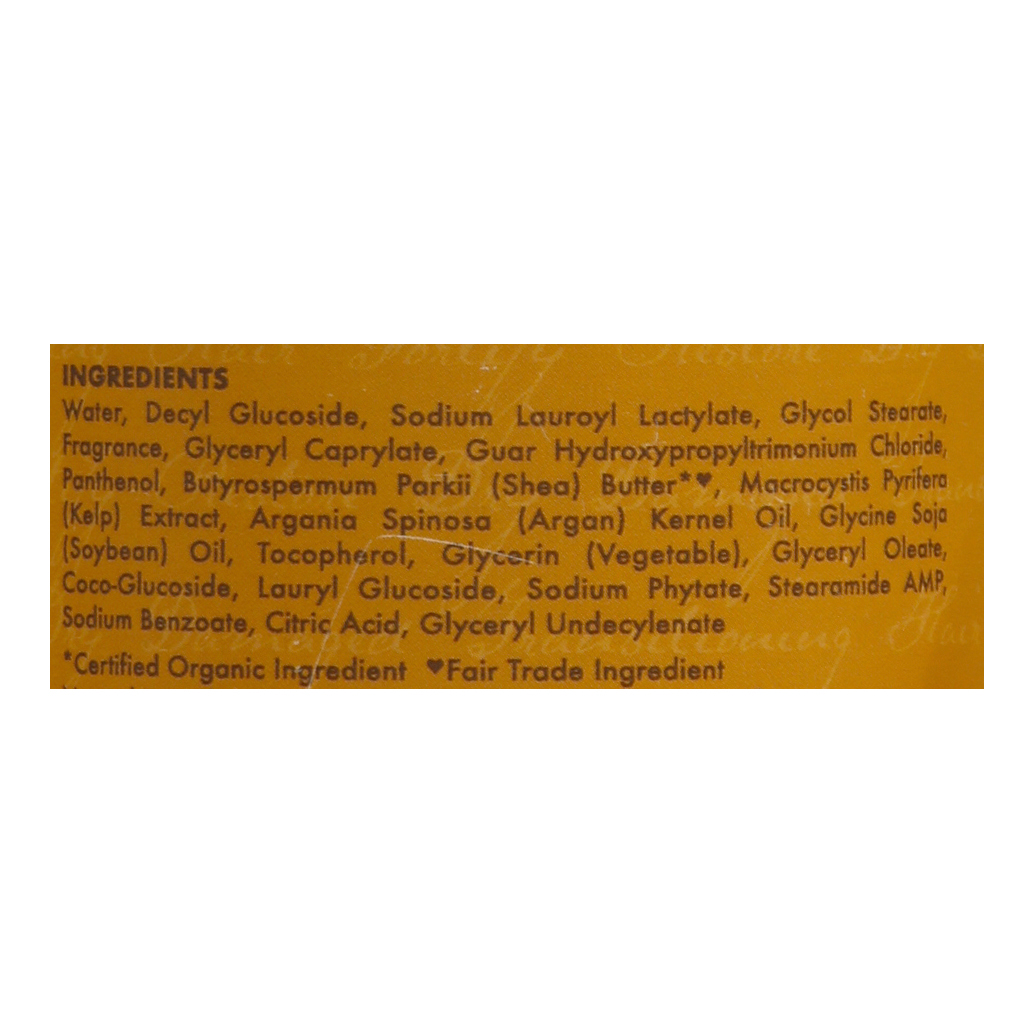 INGREDIENTS
Water, Decyl Glucoside, Sodium Lauroyl Lactylate, Glycol Stearate,
Fragrance, Glyceryl Caprylate, Guar Hydroxypropyltrimonium Chloride,
Panthenol, Butyrospermum Parkii (Shea) Butter*♥, Macrocystis Pyrifera
(Kelp) Extract, Argania Spinosa (Argan) Kernel Oil, Glycine Soja
(Soybean) Oil, Tocopherol, Glycerin (Vegetable), Glyceryl Oleate,
Coco-Glucoside, Lauryl Glucoside, Sodium Phytate, Stearamide AMP,
Sodium Benzoate, Citric Acid, Glyceryl Undecylenate
*Certified Organic Ingredient ♥Fair Trade Ingredient